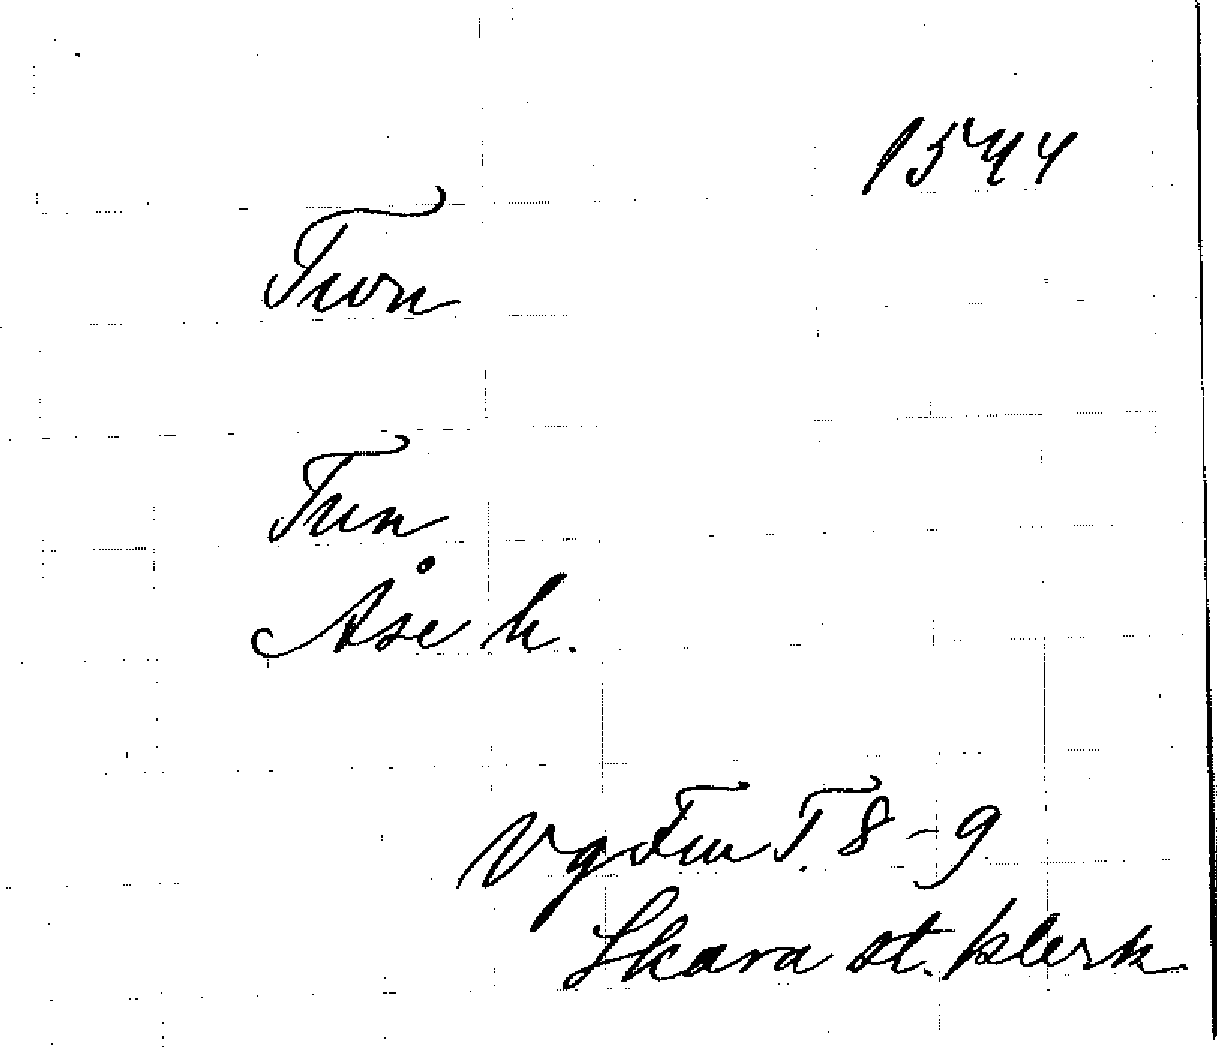 1544
Twn
Tun
Åse h.
Vg Fm T. 8-9
Skara st. klerk.